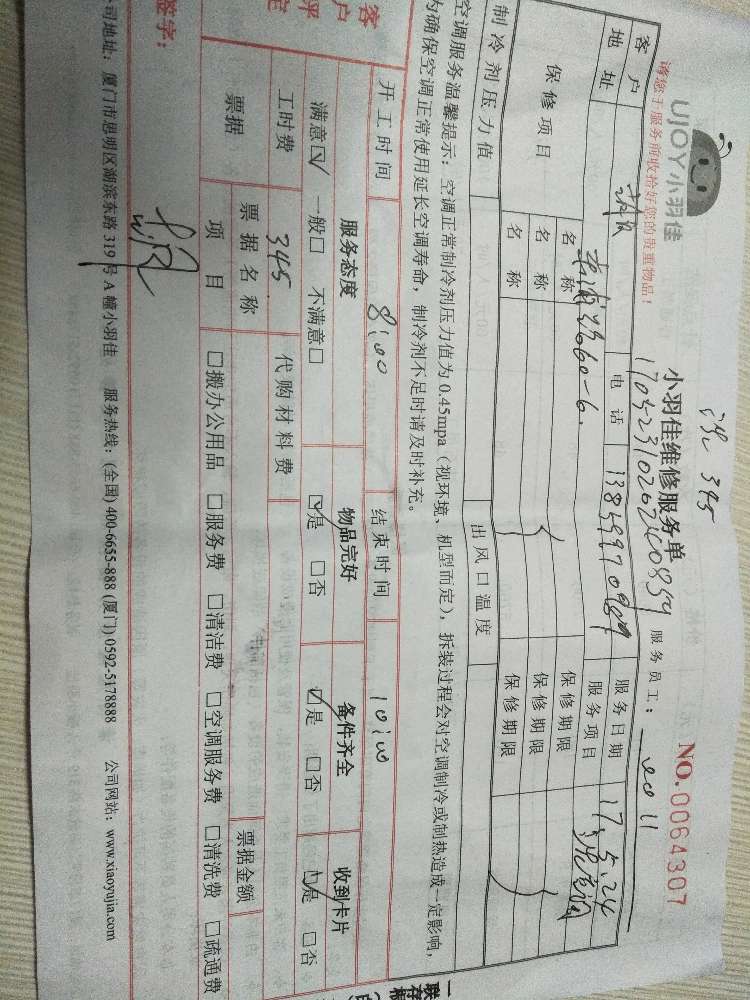 UJOY小羽佳
请您于服务前收拾好您的贵重物品!
345
小羽佳维修服务单
NO.0064307
服务员工:
客户地址
电话
服务日期 17.5.24
服务项目
保修项目
名称 保修期限
名称 保修期限
名称 保修期限
制冷剂压力值 出风口温度
空调服务温馨提示: 空调正常制冷剂压力值为0.45mpa(视环境、机型而定),拆装过程会对空调制冷或制热造成一定影响,
为确保空调正常使用延长空调寿命,制冷剂不足时请及时补充。
开工时间 8:00 结束时间 10:00
客户评定
服务态度 物品完好 备件齐全 收到卡片
满意☑ 一般□ 不满意□ ☑是 □否 ☑是 □否 ☑是 □否
工时费 345 代购材料费
票据 票据名称 票据金额
项目 □搬办公用品 □服务费 □清洁费 □空调服务费 □清洗费 □疏通费
签字:
公司地址: 厦门市思明区湖滨东路319号A幢小羽佳 服务热线: (全国) 400-6655-888 (厦门) 0592-5178888 公司网站: www.xiaoyujia.com